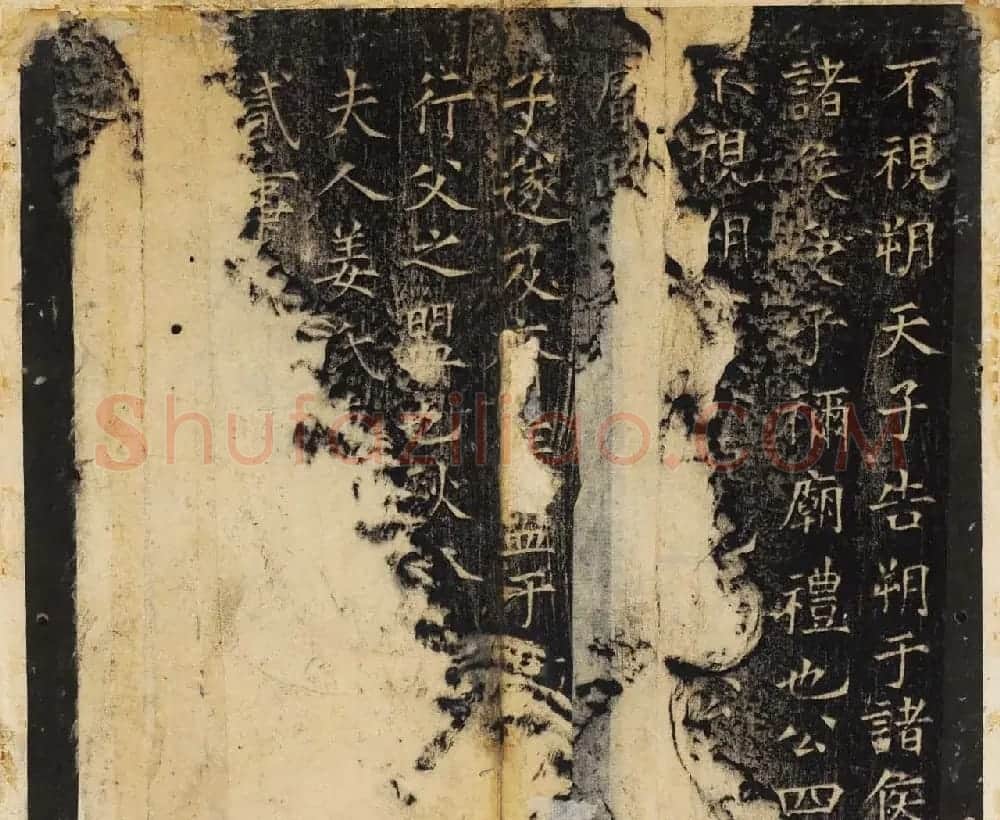 不視朔天子告朔于諸侯
諸侯受于禰廟禮也公四
不視朔公
子遂及盟于
行父之盟也秋八
夫人姜氏
貳事
Shufaziliao.COM